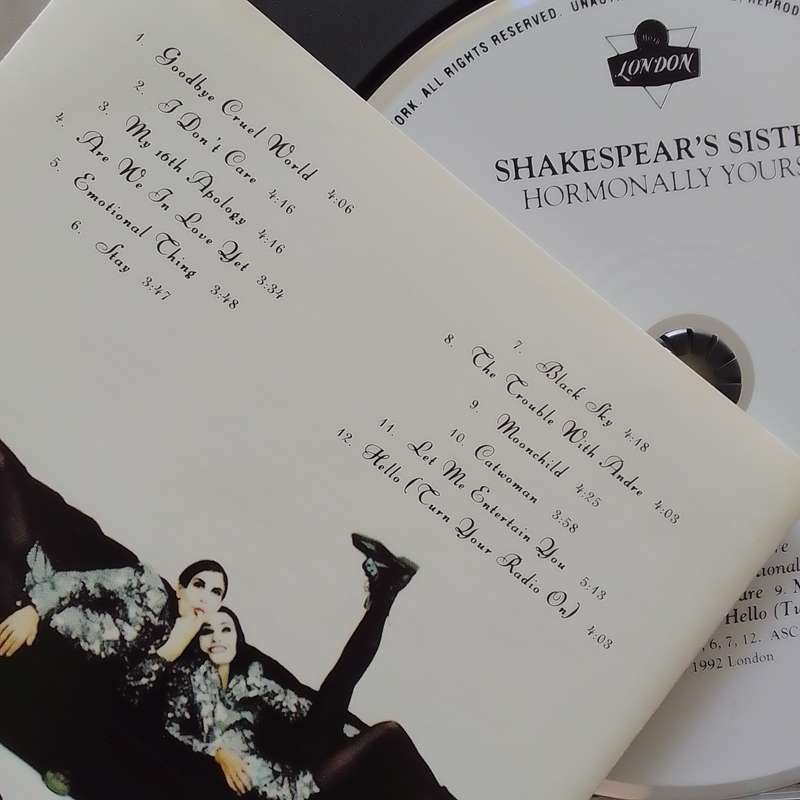 1. Goodbye Cruel World 4:06
2. I Don't Care 4:16
3. My 16th Apology 4:16
4. Are We In Love Yet 3:34
5. Emotional Thing 3:48
6. Stay 3:47
7. Black Sky 4:18
8. The Trouble With Andre 4:03
9. Moonchild 4:25
10. Catwoman 3:58
11. Let Me Entertain You 5:13
12. Hello (Turn Your Radio On) 4:03
ORK. ALL RIGHTS RESERVED. UNAU
REPROD
LONDON
SHAKESPEAR'S SISTE
HORMONALLY YOURS
9. M
Hello (Tu
, 6, 7, 12. ASC
1992 London